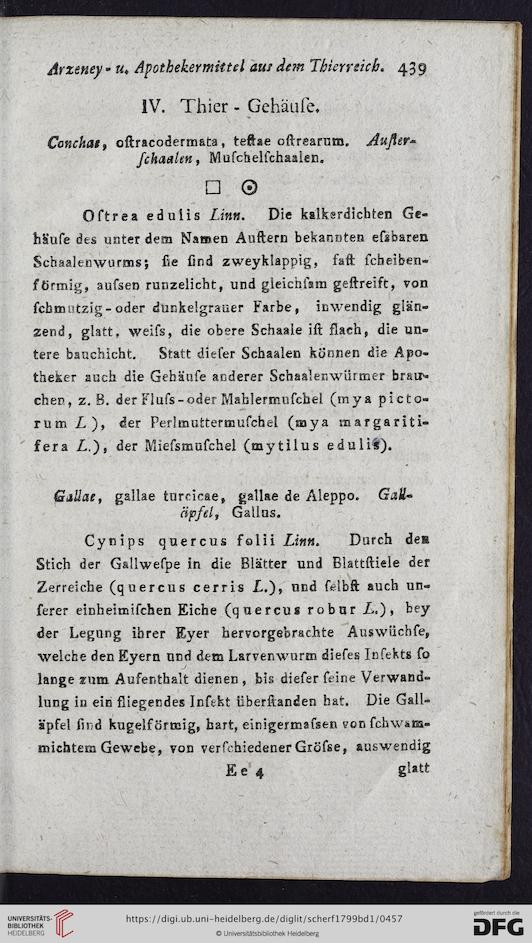 Arzeney- u. Apothekermittel aus dem Thierreich. 439
IV. Thier-Gehäuſe.
Conchae, oſtracodermata, teſtae oſtrearum. Auſter-
ſchaalen, Muſchelſchaalen.
□ ☉
Oſtrea edulis Linn. Die kalkerdichten Ge-
häuſe des unter dem Namen Auſtern bekannten eſsbaren
Schaalenwurms; ſie ſind zweyklappig, faſt ſcheiben-
förmig, auſsen runzelicht, und gleichſam geſtreift, von
ſchmutzig- oder dunkelgrauer Farbe, inwendig glän-
zend, glatt, weiſs, die obere Schaale iſt flach, die un-
tere bauchicht. Statt dieſer Schaalen können die Apo-
theker auch die Gehäuſe anderer Schaalenwürmer brau-
chen, z. B. der Fluſs- oder Mahlermuſchel (mya picto-
rum L), der Perlmuttermuſchel (mya margariti-
fera L.), der Mieſsmuſchel (mytilus edulis).
Gallae, gallae turcicae, gallae de Aleppo. Gall-
äpfel, Gallus.
Cynips quercus folii Linn. Durch den
Stich der Gallweſpe in die Blätter und Blattſtiele der
Zerreiche (quercus cerris L.), und ſelbſt auch un-
ſerer einheimiſchen Eiche (quercus robur L.), bey
der Legung ihrer Eyer hervorgebrachte Auswüchſe,
welche den Eyern und dem Larvenwurm dieſes Inſekts ſo
lange zum Aufenthalt dienen, bis dieſer ſeine Verwand-
lung in ein fliegendes Inſekt überſtanden hat. Die Gall-
äpfel ſind kugelförmig, hart, einigermaſsen von ſchwam-
michtem Gewebe, von verſchiedener Gröſse, auswendig
Ee 4 glatt
UNIVERSITÄTS-
BIBLIOTHEK
HEIDELBERG
https://digi.ub.uni-heidelberg.de/diglit/scherf1799bd1/0457
© Universitätsbibliothek Heidelberg
gefördert durch die
DFG